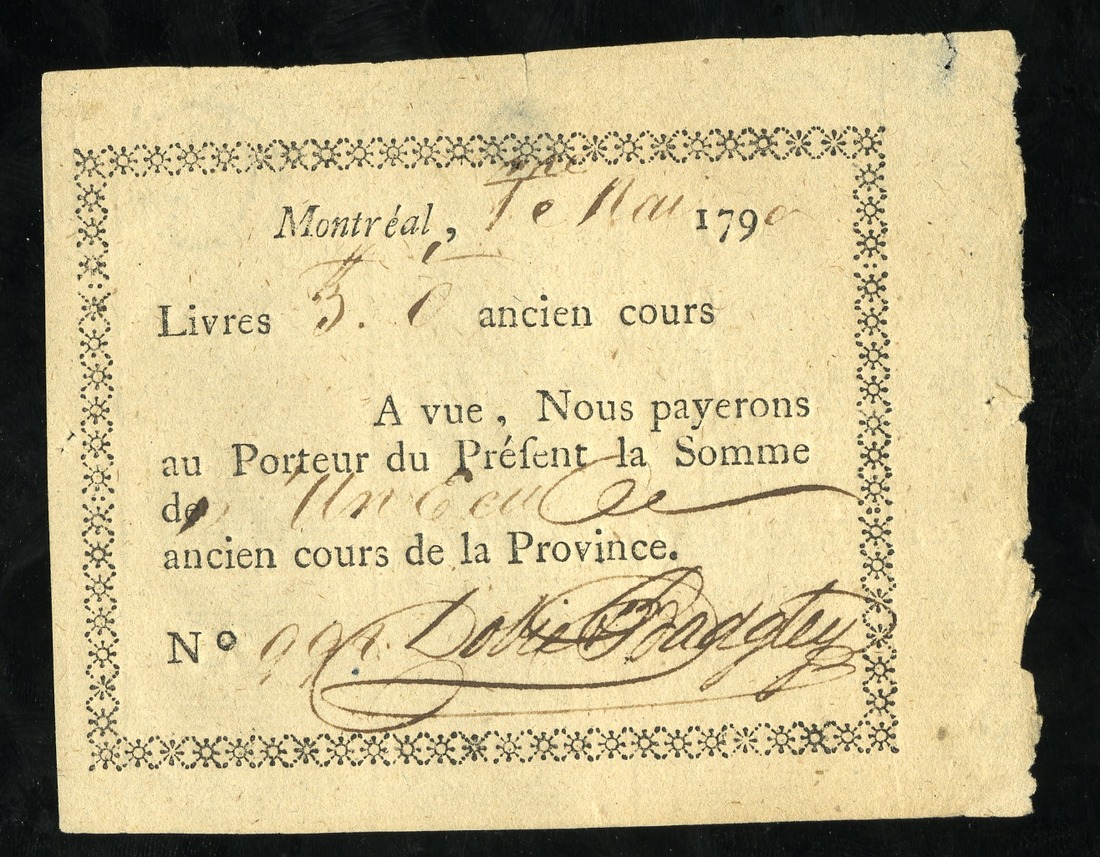 Montréal, 1me Mai 1790
Livres 3. 0 ancien cours
A vue, Nous payerons
au Porteur du Préſent la Somme
de Un Ecu
ancien cours de la Province.
No 991. Dobie & Badgley